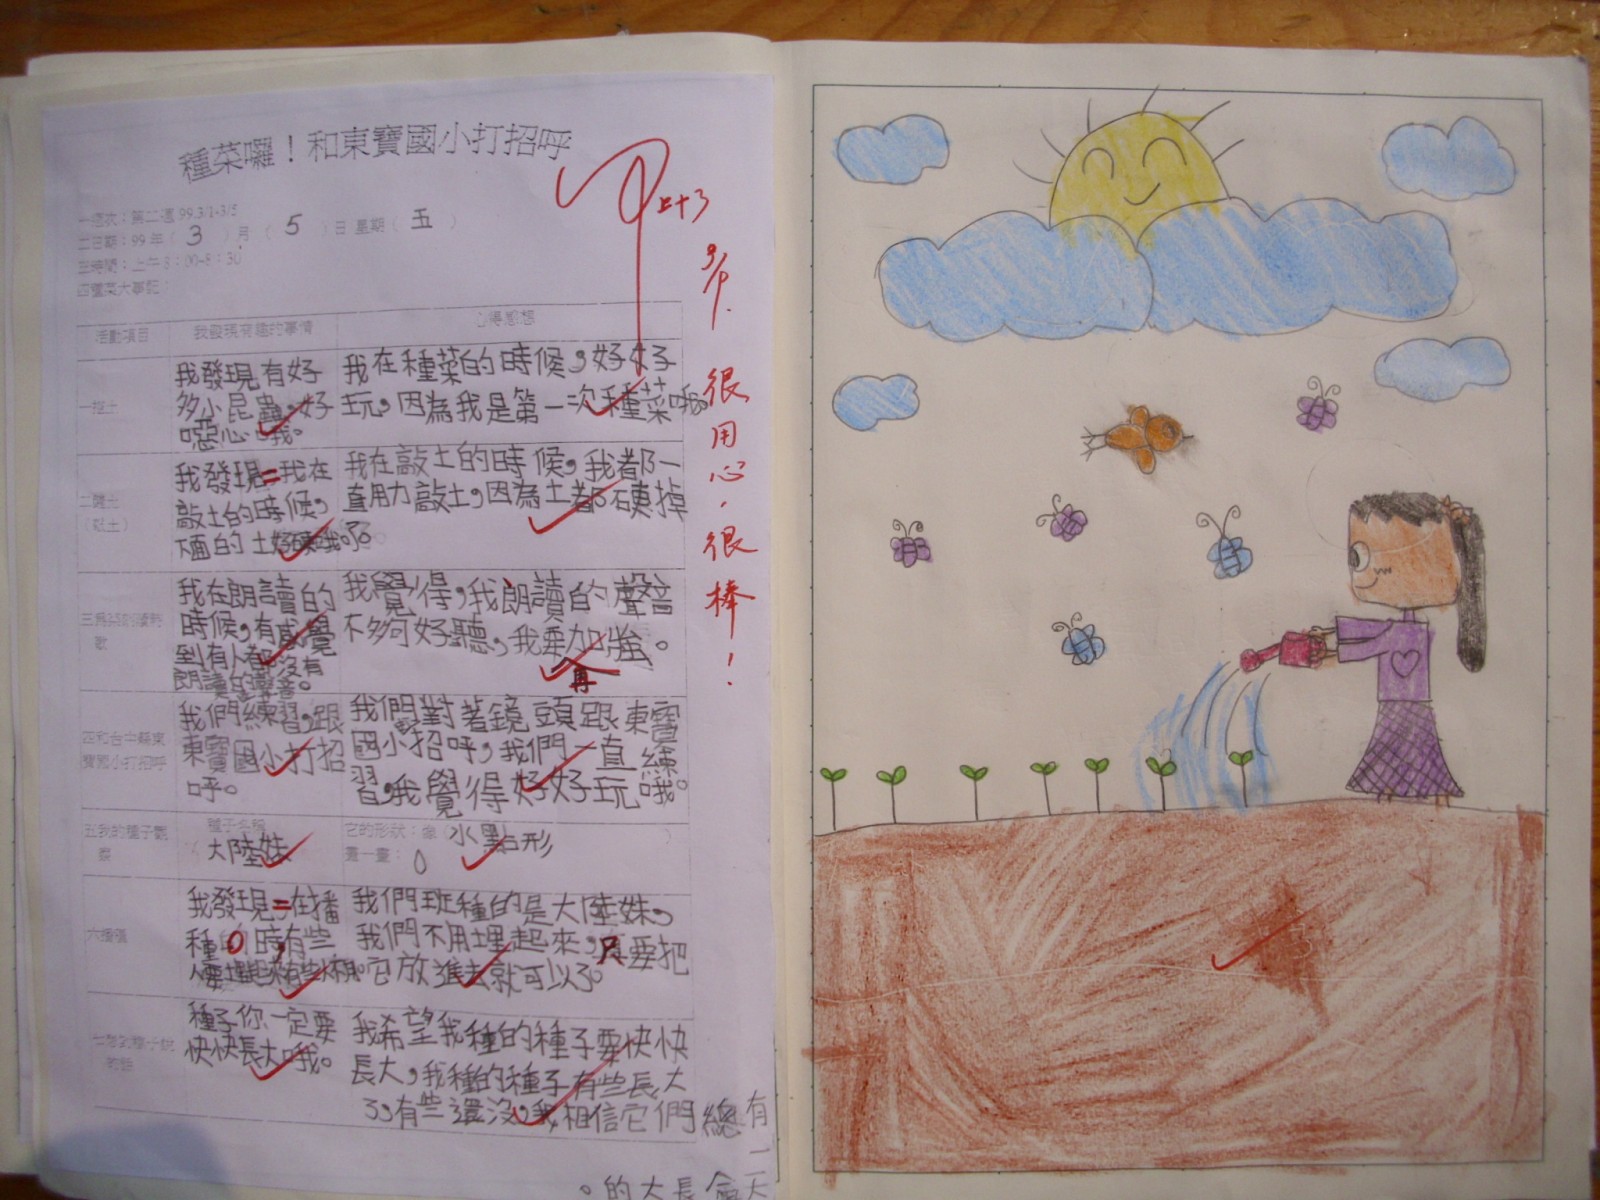 種菜囉！和東寶國小打招呼
甲上+3
一週次：第二週 99.3/1-3/5
二日期：99年（ 3 ）月（ 5 ）日 星期（ 五 ）
三時間：上午8：00-8：30
四種菜大事記：
很用心，很棒！
活動項目
我發現有趣的事情
心得感想
我發現有好
多小昆蟲，好
噁心哦。
我在種菜的時候，好好
玩，因為我是第一次種菜哦。
我發現=我在
敲土的時候，
下面的土好硬哦。
我在敲土的時候，我都一
直用力敲土，因為土都硬掉
了
我在朗讀的
時候，有感覺
到有人都沒有
朗讀的聲音。
我覺得，我朗讀的聲音
不夠好聽，我要加強。
再
四和台中縣東
寶國小打招呼
我們練習，跟
東寶國小打招
呼。
我們對著鏡頭跟東寶
國小招呼，我們一直練
習，我覺得好好玩哦。
五我的種子觀
察
種子名稱
大陸妹
它的形狀：像（水點形）
畫一畫：
六播種
我發現=在播
種的時，有些
我們班種的是大陸妹，
我們不用埋起來，只要把
它放進去就可以了。
種子你一定要
快快長大哦。
我希望我種的種子要快快
長大，我種的種子有些長大
了，有些還沒，我相信它們總有
一天會長大的。